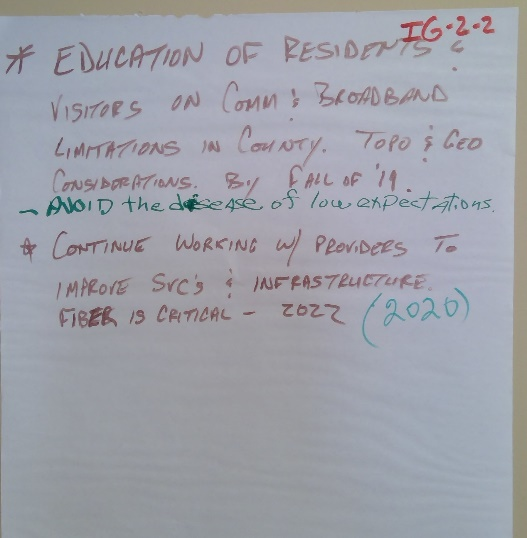 IG-2-2
* EDUCATION OF RESIDENTS &
VISITORS ON COMM & BROADBAND
LIMITATIONS IN COUNTY. TOPO & GEO
CONSIDERATIONS. BY FALL OF '19.
- AVOID the disease of low expectations.
* CONTINUE WORKING W/ PROVIDERS TO
IMPROVE SVC'S & INFRASTRUCTURE.
FIBER IS CRITICAL - 2022 (2020)